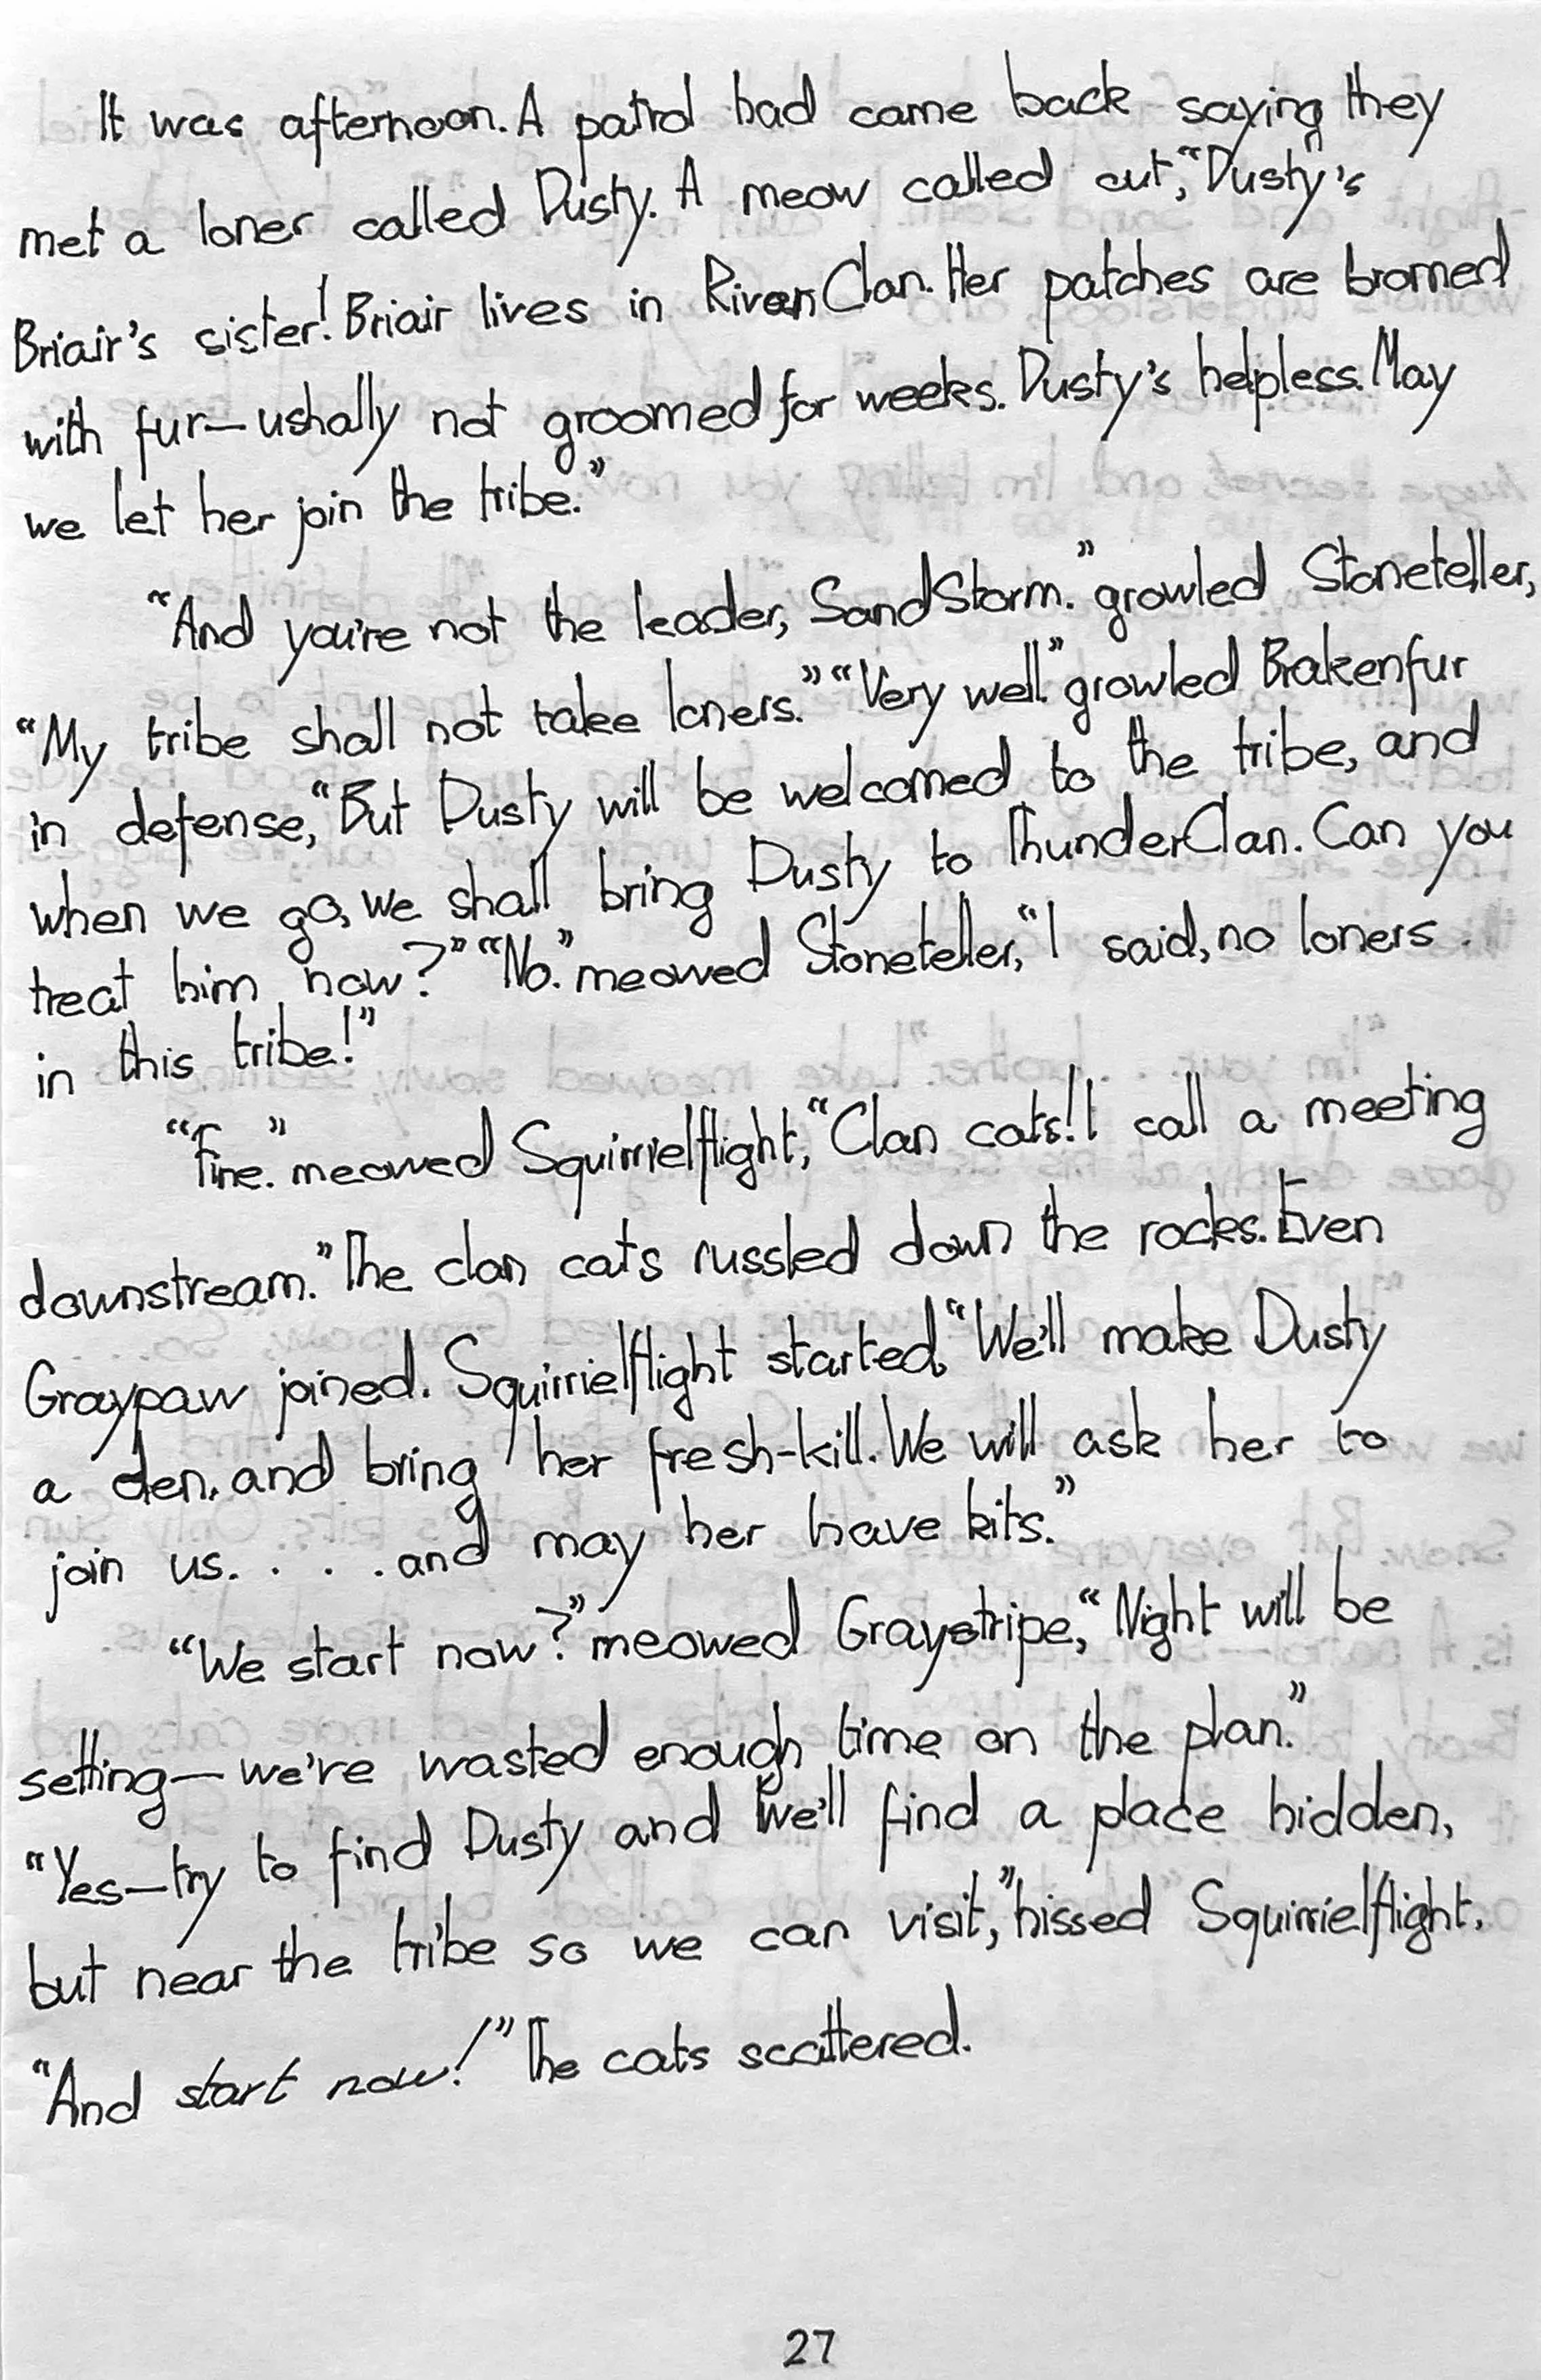 It was afternoon. A patrol had came back saying they
met a loner called Dusty. A meow called out, “Dusty's
Briair's sister! Briair lives in RiverClan. Her patches are bromed
with fur—ushally not groomed for weeks. Dusty's helpless. May
we let her join the tribe.”
“And you're not the leader, SandStorm.” growled Stoneteller,
“My tribe shall not take loners.” “Very well.” growled Brakenfur
in defense, “But Dusty will be welcomed to the tribe, and
when we go, we shall bring Dusty to ThunderClan. Can you
treat him now?” “No.” meowed Stoneteller, “I said, no loners
in this tribe!”
“Fine.” meowed Squirrielflight, “Clan cats! I call a meeting
downstream.” The clan cats russled down the rocks. Even
Graypaw joined. Squirrielflight started, “We'll make Dusty
a den, and bring her fresh-kill. We will ask her to
join us. . . . and may her have kits.”
“We start now?” meowed Graystripe, “Night will be
setting—we're wasted enough time on the plan.”
“Yes—try to find Dusty and we'll find a place hidden,
but near the tribe so we can visit,” hissed Squirrielflight.
“And start now!” The cats scattered.
27